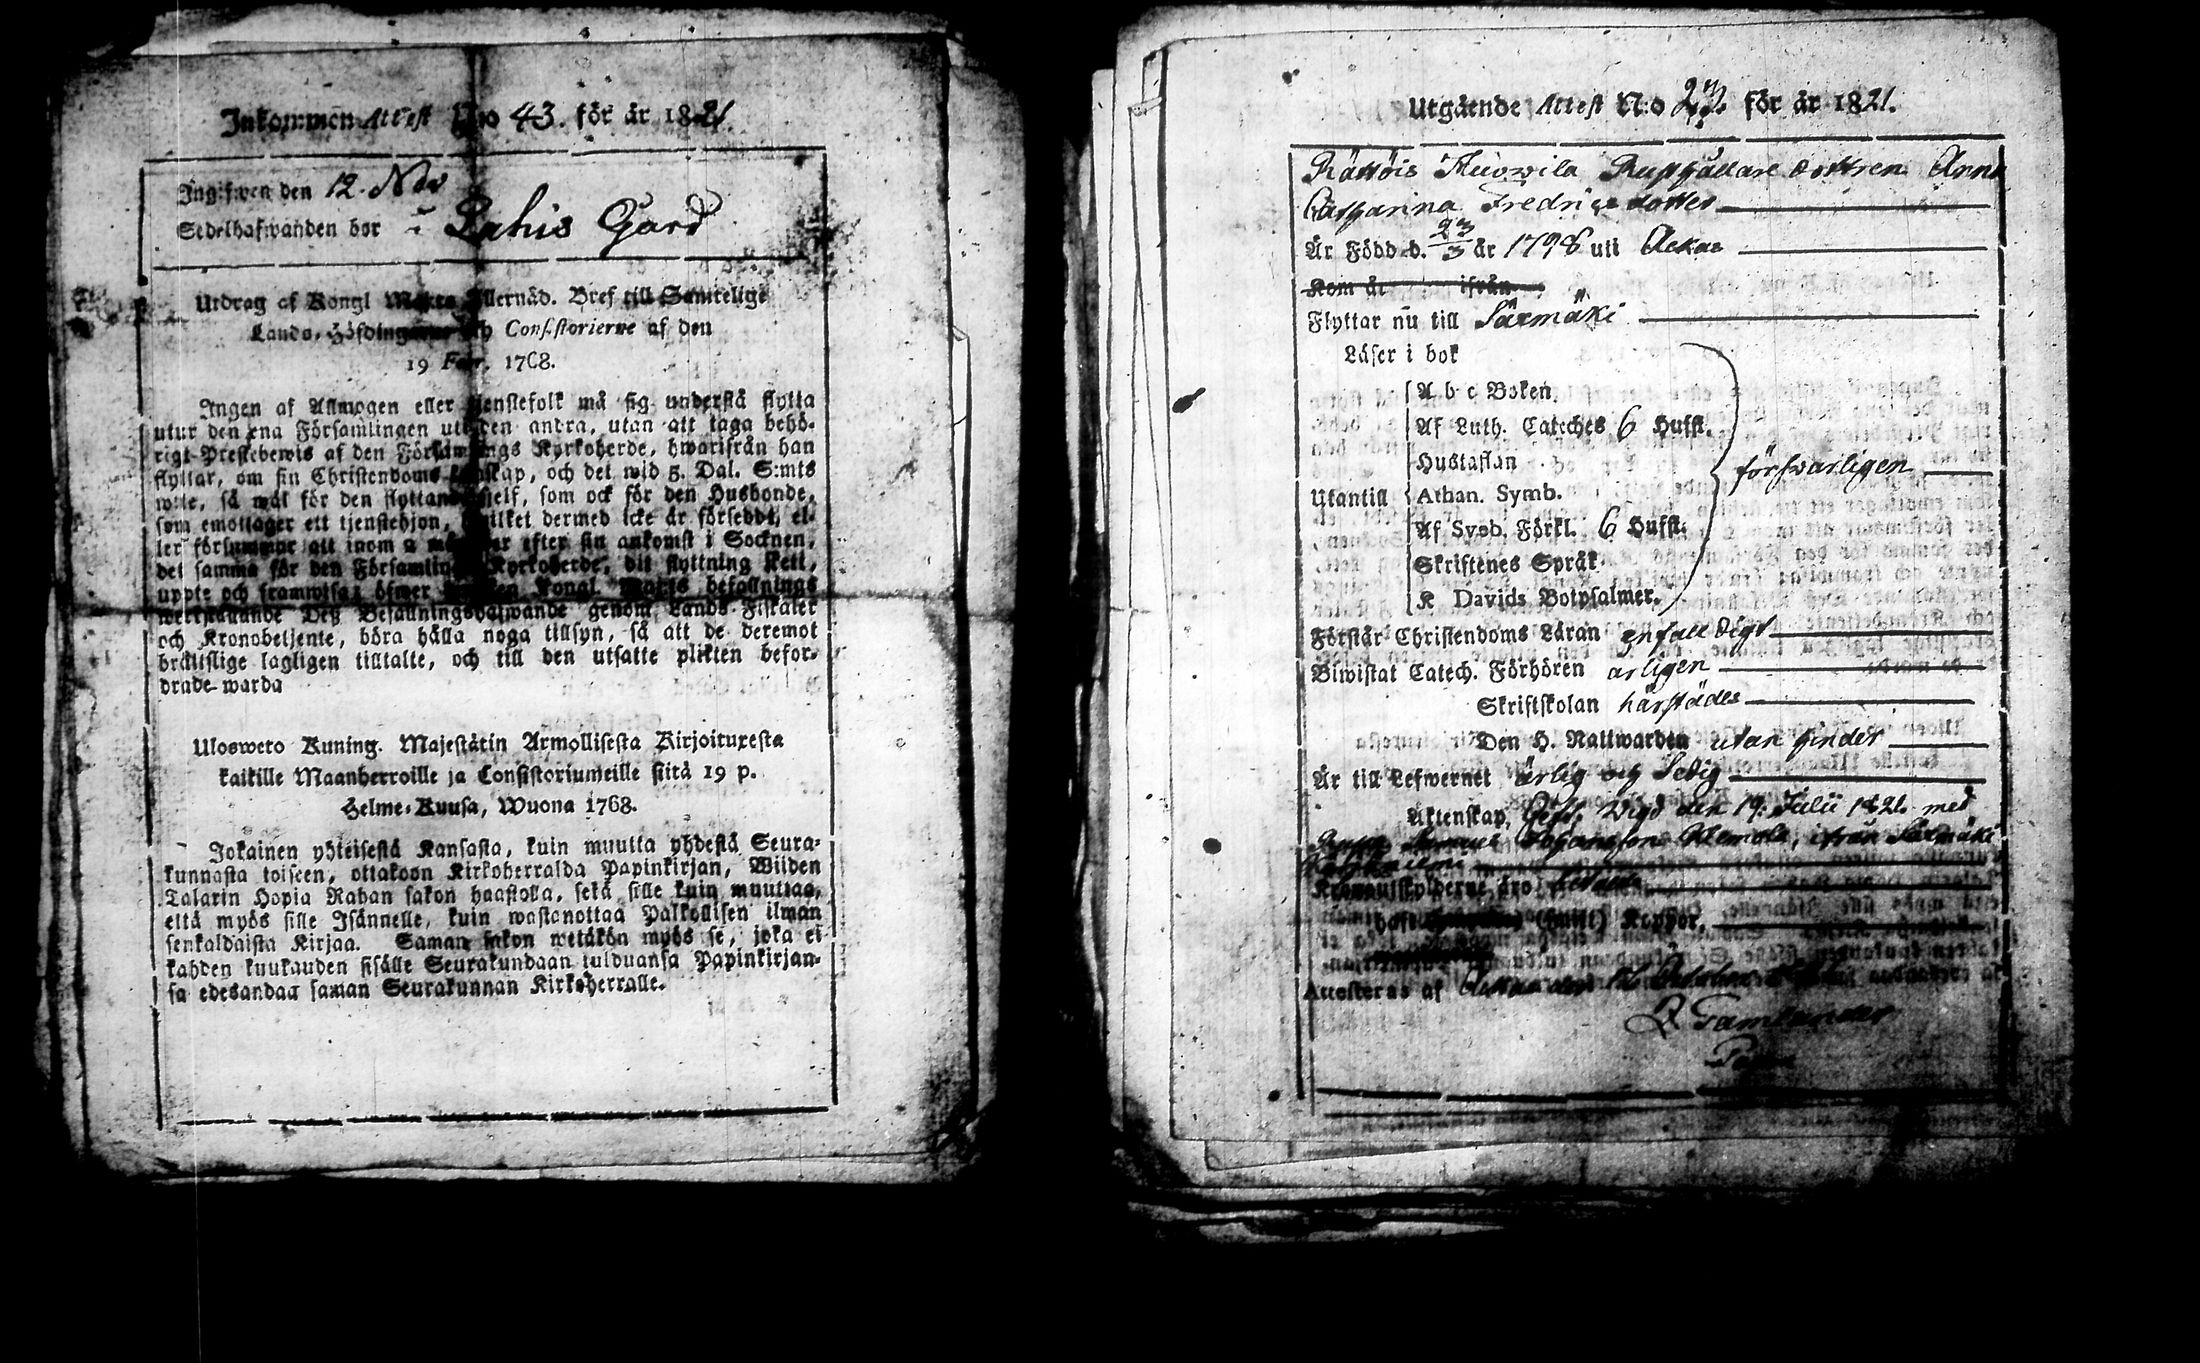 Inkommen Attest N:o 43. för år 1821.
Ingifwen den 12. Nov
Sedelhafwanden bor i Lahis Gård
Utdrag af Kongl Maj:ts Allernåd. Bref till Samtelige
Lands-Höfdingarne och Consistorierne af den
19 Febr. 1768.
Ingen af Allmogen eller tjenstefolk må sig understå flytta
utur den ena Församlingen uti den andra, utan att taga behö-
rigt Prestebewis af den Församlings Kyrkoherde, hwarifrån han
flyttar, om sin Christendoms kunskap, och det wid 5. Dal. S:mts
wite, så wäl för den flyttande sielf, som ock för den Husbonde,
som emottager ett tjenstehjon, hwilket dermed icke är försedt, el-
ler försummar att inom 2 månader efter sin ankomst i Socknen,
det samma för den Församlings Kyrkoherde, dit flyttning skett,
uppte och framwisa; öfwer Kongl. Maj:ts befallnings
werkställande Deß Befallningshafwande genom Lands-Fiskaler
och Kronobetjente, böra hålla noga tillsyn, så att de deremot
bråttslige lagligen tilltalte, och till den utsatte plikten befor-
drade warda
Ulosweto Kuning. Majestätin Armollisesta Kirjoituxesta
kaikille Maanherroille ja Consistoriumeille siitä 19 p.
Helme-Kuusa, Wuona 1768.
Jokainen yhteisestä Kansasta, kuin muutta yhdestä Seura-
kunnasta toiseen, ottakoon Kirkoherralda Papinkirjan, Wiiden
Talarin Hopia Rahan sakon haastolla, sekä sille kuin muuttaa,
että myös sille Isännelle, kuin wastanottaa Palkollisen ilman
senkaldaista Kirjaa. Saman sakon wetäkön myös se, joka ei
kahden kuukauden sisälle Seurakundaan tulduansa Papinkirjan-
sa edesandaa saman Seurakunnan Kirkoherralle.
Utgående Attest N:o 23. för år 1821.
Rättöis Rusthållare dottren Anna
Catharina Fredricsdotter
Är Född d. 23/3 år 1798 uti Ackas
Kom år ifrån
Flyttar nu till Säxmäki
Läser i bok
A b c Boken
Af Luth. Cateches 6 Hufst.
Hustaflan
försvarligen
Utantill Athan. Symb.
Af Sveb. Förkl. 6 Hufst.
Skriftenes Språk
K Davids Botpsalmer.
Förstår Christendoms Läran enfalldigt
Biwistat Catech. Förhören årligen
Skriftskolan härstädes
Den H. Nattwarden utan hinder
Är till Lefwernet ärlig och Sedig
Äktenskap, Gift, Vigd den 19. Julii 1821 med
Samuel Johansson ifrån Säxmäki
Kronoutskylderne äro
haft Koppor.
Attesteras af Ackas den October
Gamlander